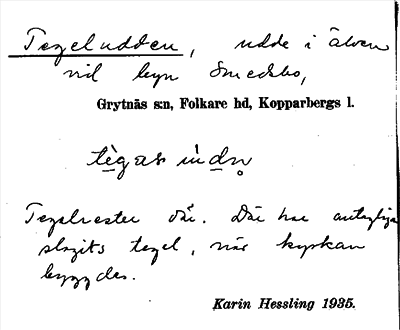 Tegeludden, udde i älven
vid byn Smedsbo,
Grytnäs s:n, Folkare hd, Kopparbergs l.
Tegelrester där. Där har antagligen
slagits tegel, när kyrkan
byggdes.
Karin Hessling 1935.